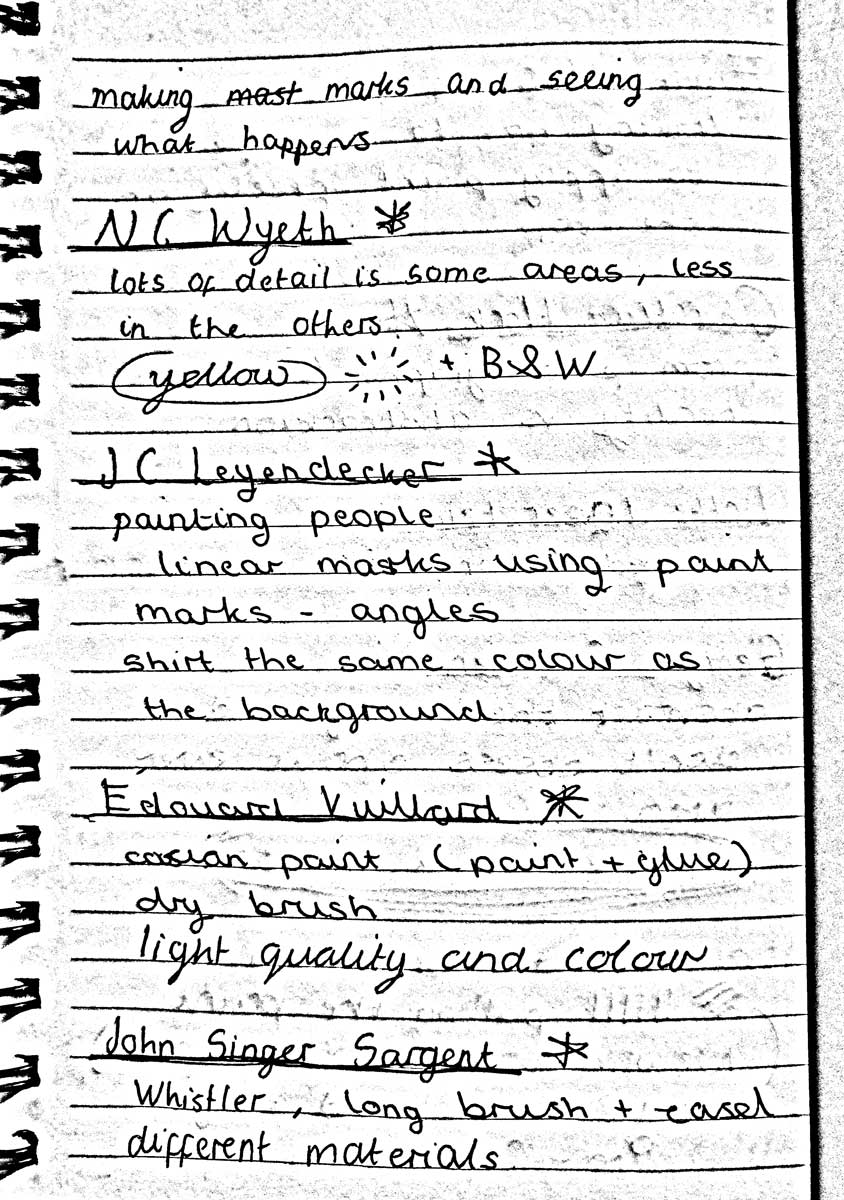 making mast marks and seeing
what happens
N C Wyeth *
lots of detail is some areas, less
in the others
yellow + B&W
J C Leyendecker *
painting people
linear masks using paint
marks - angles
shirt the same colour as
the background
Edouard Vuillard *
casian paint (paint + glue)
dry brush
light quality and colour
John Singer Sargent *
Whistler, long brush + easel
different materials